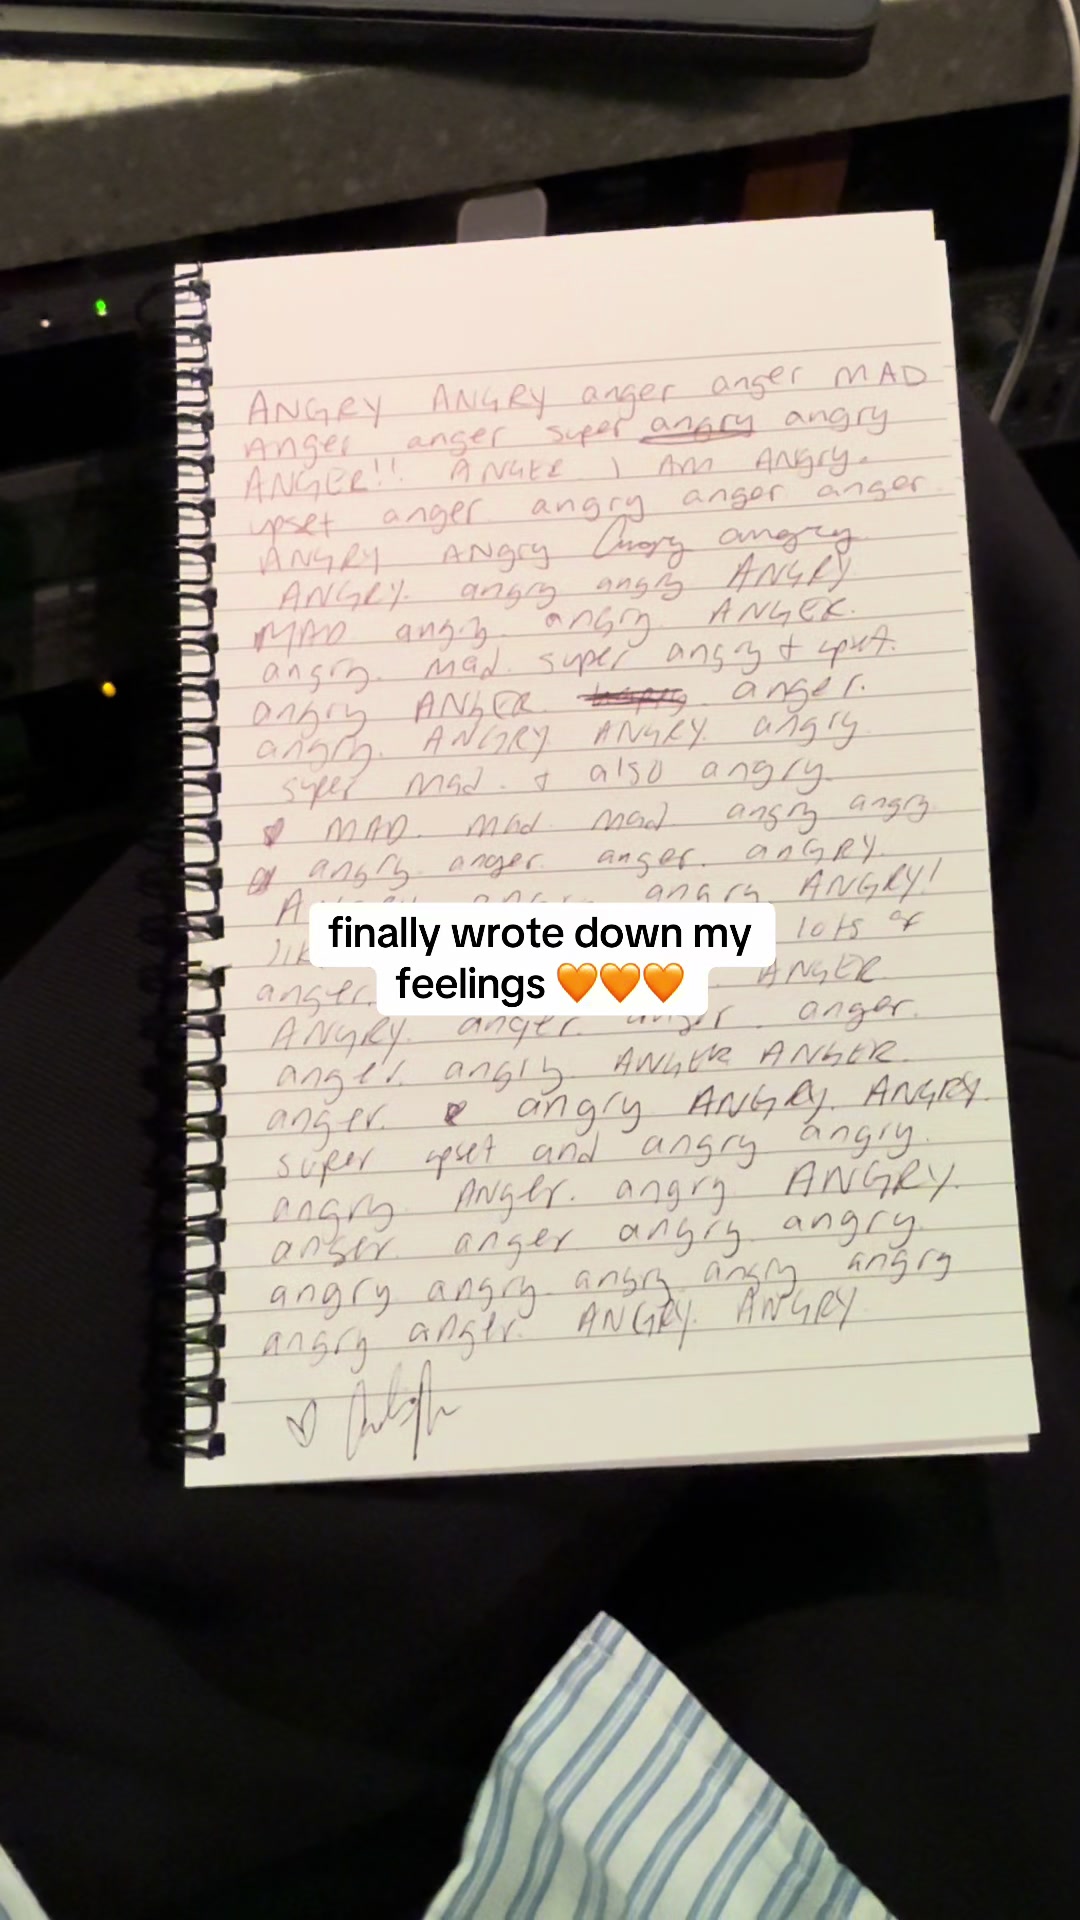 ANGRY ANGRY anger anger MAD
Anger anger super angry angry
ANGER!! ANGER I AM Angry.
upset anger angry anger anger
ANGRY ANgry angry angry
ANGRY. angry angry ANGRY
MAD angry. angry. ANGER.
angry. mad. super angry + upset.
angry ANGER anger.
angry. ANGRY ANGRY. angry
super mad. + also angry.
MAD. mad. mad angry angry
angry. anger. anger. anGRY.
angry ANGRY!
finally wrote down my
lots of
feelings 🧡🧡🧡
anger. ANGER
ANGRY. anger. anger. anger.
anger. angry. ANGER ANGER.
anger. angry ANGRY. ANGRY.
super upset and angry angry.
angry ANger. angry ANGRY.
anger. anger angry. angry.
angry angry angry angry angry
angry anger. ANGRY. ANGRY